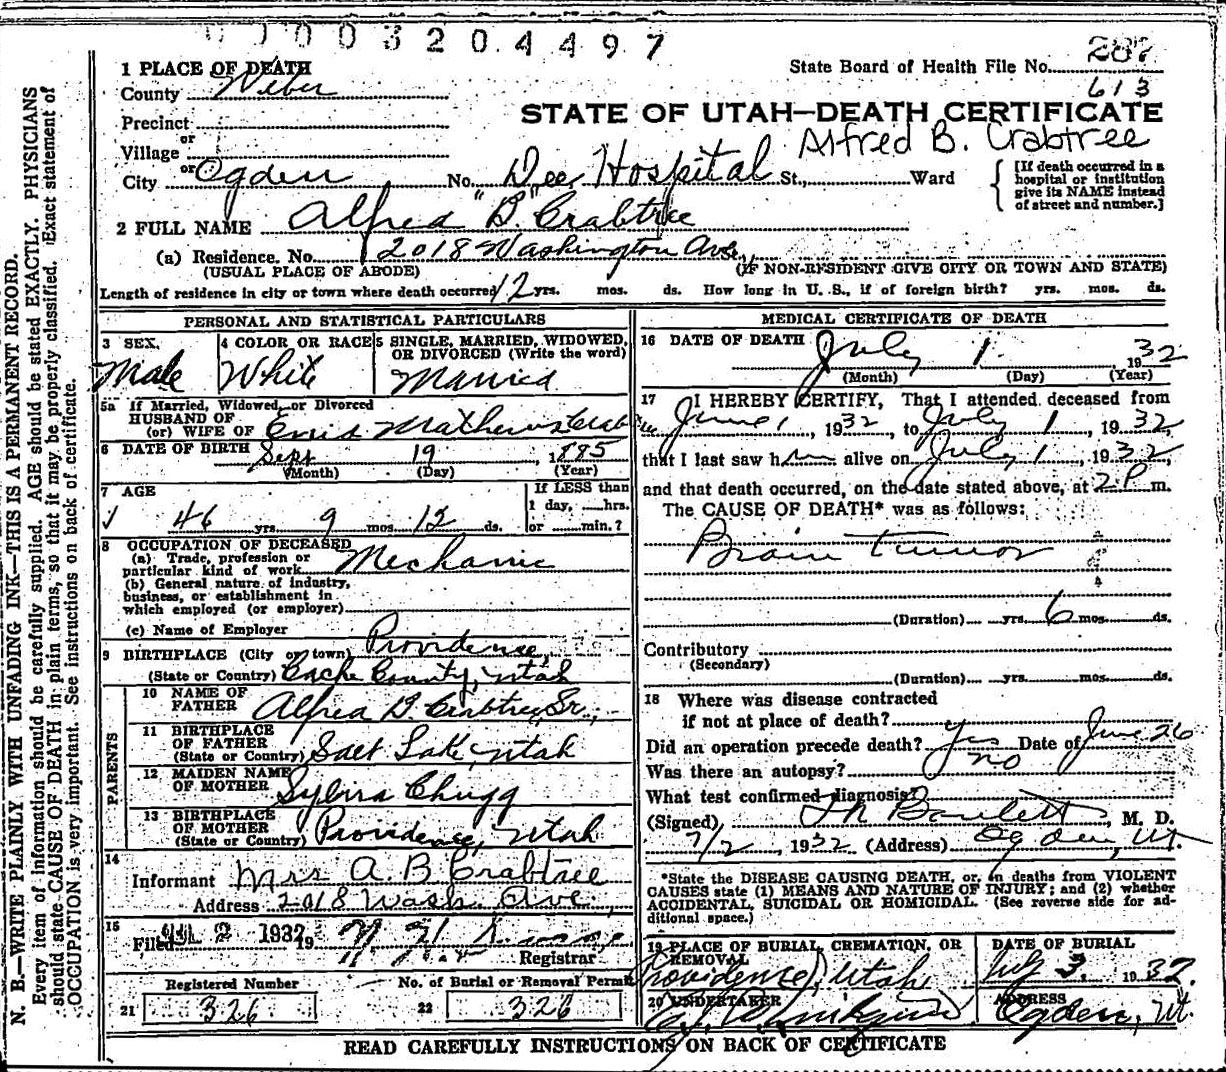 0003204497
287
State Board of Health File No.
613
1 PLACE OF DEATH
County Weber
STATE OF UTAH—DEATH CERTIFICATE
Precinct
Alfred B. Crabtree
or
Village
or
City Ogden No. Dee Hospital St., Ward
[If death occurred in a hospital or institution give its NAME instead of street and number.]
2 FULL NAME Alfred "B." Crabtree
(a) Residence. No. 2018 Washington Ave.,
(USUAL PLACE OF ABODE) (IF NON-RESIDENT GIVE CITY OR TOWN AND STATE)
Length of residence in city or town where death occurred 12 yrs. mos. ds. How long in U. S., if of foreign birth? yrs. mos. ds.
PERSONAL AND STATISTICAL PARTICULARS
3 SEX. 4 COLOR OR RACE 5 SINGLE, MARRIED, WIDOWED, OR DIVORCED (Write the word)
Male White Married
5a If Married, Widowed, or Divorced
HUSBAND OF
(or) WIFE OF Enid Mathews Crab
6 DATE OF BIRTH Sept 19, 1885
(Month) (Day) (Year)
7 AGE If LESS than
1 day, hrs.
46 yrs. 9 mos. 12 ds. or min.?
8 OCCUPATION OF DECEASED
(a) Trade, profession or
particular kind of work Mechanic
(b) General nature of industry,
business, or establishment in
which employed (or employer)
(c) Name of Employer
9 BIRTHPLACE (City or town) Providence,
(State or Country) Cache County, Utah
PARENTS
10 NAME OF
FATHER Alfred B. Crabtree, Sr.,
11 BIRTHPLACE
OF FATHER
(State or Country) Salt Lake, Utah
12 MAIDEN NAME
OF MOTHER Sylvira Chugg
13 BIRTHPLACE
OF MOTHER
(State or Country) Providence, Utah
14
Informant Mrs A. B. Crabtree
Address 2018 Wash. Ave.,
15
Filed JUL 2 1932 19
Registrar
Registered Number No. of Burial or Removal Permit
21 326 22 326
MEDICAL CERTIFICATE OF DEATH
16 DATE OF DEATH July 1 1932
(Month) (Day) (Year)
17 I HEREBY CERTIFY, That I attended deceased from
June 1, 1932, to July 1, 1932,
that I last saw him alive on July 1, 1932,
and that death occurred, on the date stated above, at 2 P m.
The CAUSE OF DEATH* was as follows:
Brain tumor
(Duration) yrs. 6 mos. ds.
Contributory
(Secondary)
(Duration) yrs. mos. ds.
18 Where was disease contracted
if not at place of death?
Did an operation precede death? Yes Date of June 26
Was there an autopsy? no
What test confirmed diagnosis?
(Signed) Bartlett, M. D.
7/2 1932 (Address) Ogden, Ut.
*State the DISEASE CAUSING DEATH, or, in deaths from VIOLENT
CAUSES state (1) MEANS AND NATURE OF INJURY; and (2) whether
ACCIDENTAL, SUICIDAL OR HOMICIDAL. (See reverse side for ad-
ditional space.)
19 PLACE OF BURIAL, CREMATION, OR REMOVAL DATE OF BURIAL
Providence, Utah July 3, 1932
20 UNDERTAKER ADDRESS
Ogden, Ut.
READ CAREFULLY INSTRUCTIONS ON BACK OF CERTIFICATE
N. B.—WRITE PLAINLY WITH UNFADING INK—THIS IS A PERMANENT RECORD.
Every item of information should be carefully supplied. AGE should be stated EXACTLY. PHYSICIANS
should state CAUSE OF DEATH in plain terms, so that it may be properly classified. Exact statement of
OCCUPATION is very important. See instructions on back of certificate.